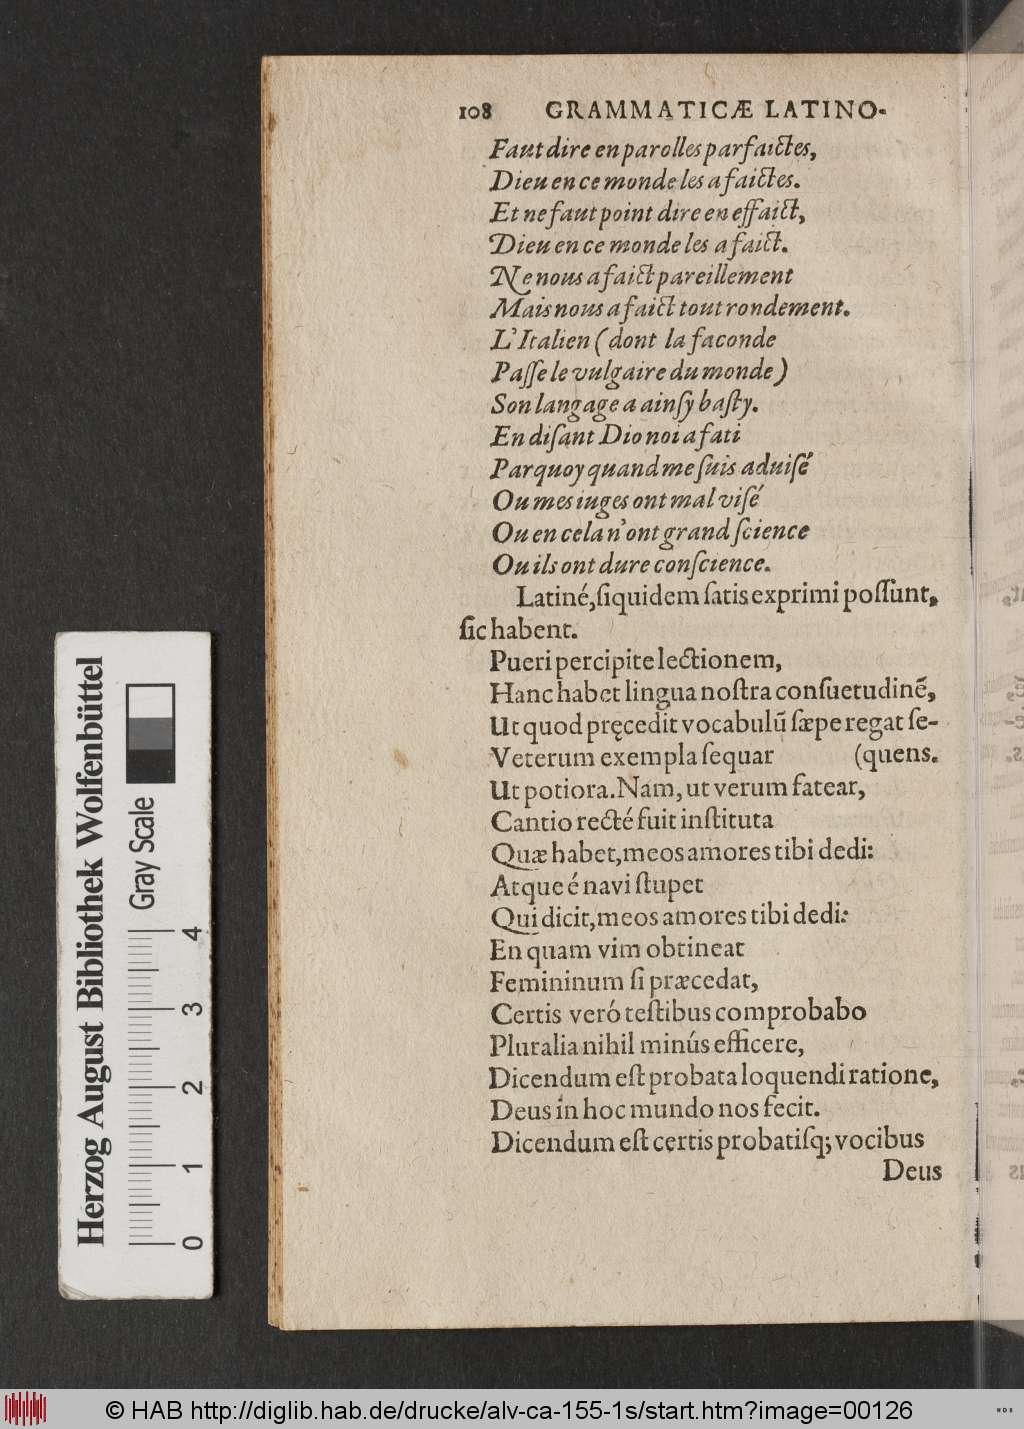 108 GRAMMATICÆ LATINO-
Faut dire en parolles parfaictes,
Dieu en ce monde les a faictes.
Et ne faut point dire en effaict,
Dieu en ce monde les a faict.
Ne nous a faict pareillement
Mais nous a faict tout rondement.
L'Italien (dont la faconde
Paſſe le vulgaire du monde)
Son langage a ainſy baſty.
En diſant Dio noi a fati
Parquoy quand me ſuis aduiſé
Ou mes iuges ont mal viſé
Ou en cela n'ont grand ſcience
Ou ils ont dure conſcience.
Latiné, ſiquidem ſatis exprimi poſſunt,
ſic habent.
Pueri percipite lectionem,
Hanc habet lingua noſtra conſuetudinẽ,
Ut quod pręcedit vocabulũ ſæpe regat ſe-
Veterum exempla ſequar (quens.
Ut potiora. Nam, ut verum fatear,
Cantio recté fuit inſtituta
Quæ habet, meos amores tibi dedi:
Atque é navi ſtupet
Qui dicit, meos amores tibi dedi:
En quam vim obtineat
Femininum ſi præcedat,
Certis veró teſtibus comprobabo
Pluralia nihil minús efficere,
Dicendum eſt probata loquendi ratione,
Deus in hoc mundo nos fecit.
Dicendum eſt certis probatiſq; vocibus
Deus
Herzog August Bibliothek Wolfenbüttel
Gray Scale
0 1 2 3 4
© HAB http://diglib.hab.de/drucke/alv-ca-155-1s/start.htm?image=00126